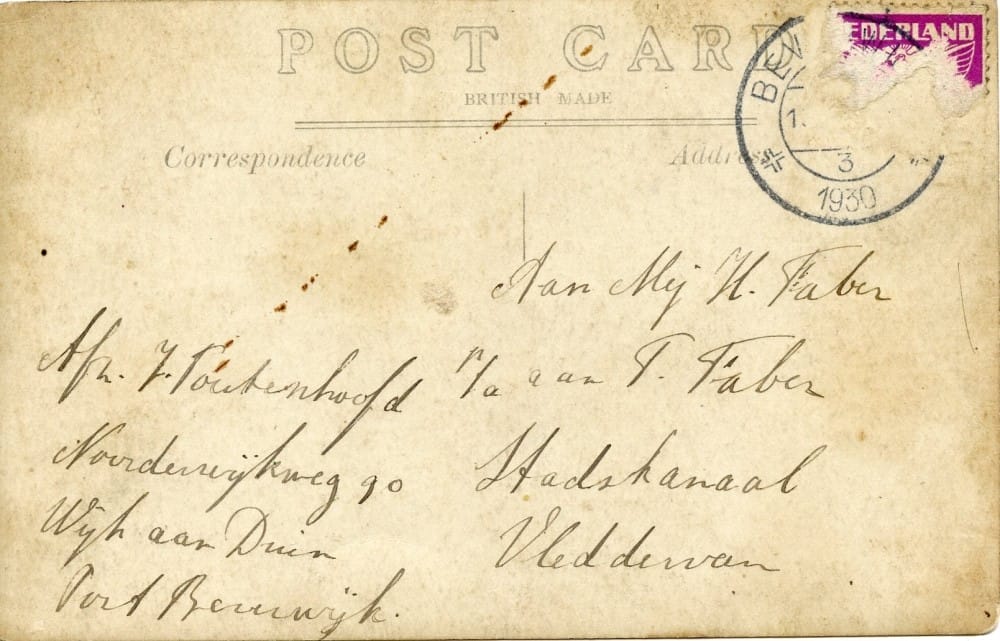 POST CARD
BRITISH MADE
Correspondence
Address
NEDERLAND
BEV
1.
3
1930
Aan Mej H. Faber
p/a aan T. Faber
Stadskanaal
Vleddervan
Afz. J. Toutenhoofd
Noorderwijkweg 90
Wijk aan Duin
Post Beverwijk.